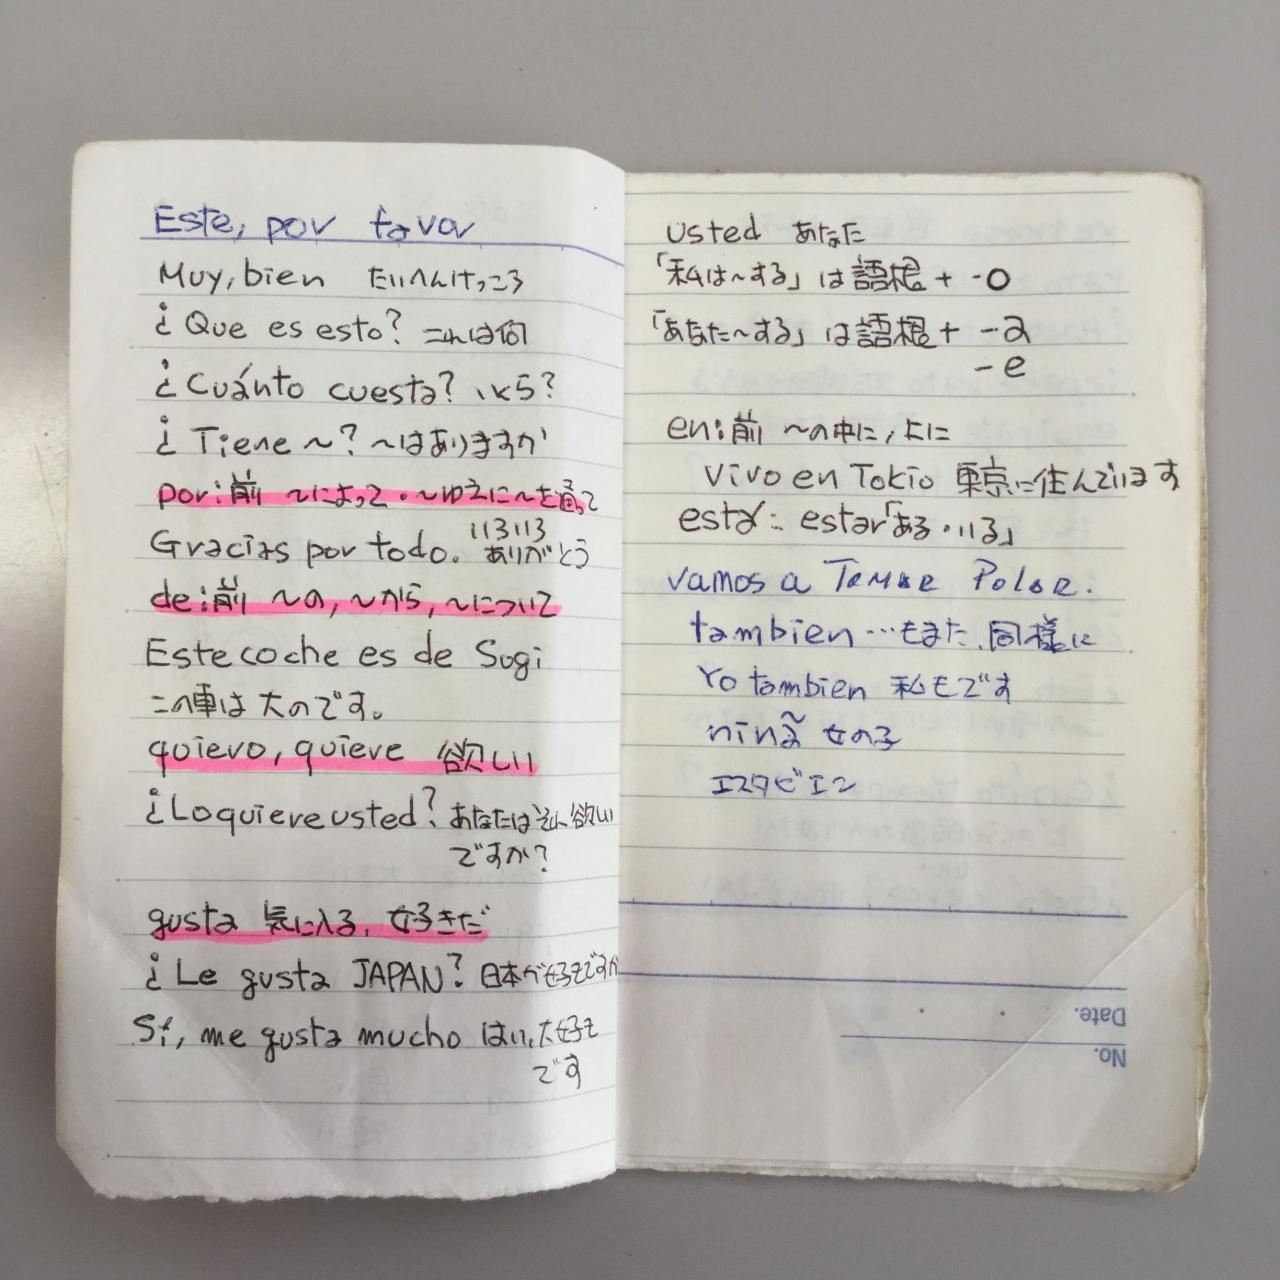 Este, por favor
Muy, bien たいへんけっこう
¿Que es esto? これは何
¿Cuánto cuesta? いくら?
¿Tiene ～? ～はありますか
por:前 ～によって・～ゆえに～を通って
Gracias por todo. いろいろありがとう
de:前 ～の, ～から, ～について
Este coche es de Sugi
この車は 大のです。
quievo, quieve 欲しい
¿Lo quiere usted? あなたは それ 欲しい
ですか?
gusta 気に入る, 好きだ
¿Le gusta JAPAN? 日本が好きですか
Sí, me gusta mucho はい, 大好き
です
usted あなた
「私は～する」は語根 + -o
「あなた～する」は語根 + -a
-e
en:前 ～の中に, 上に
Vivo en Tokio 東京に住んでいます
está: estar「ある・いる」
vamos a Tomar Polar.
tambien …もまた、同様に
Yo tambien 私もです
ninã 女の子
エスタビエン
Date.
No.